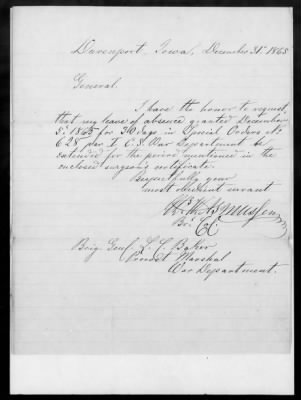 Davenport, Iowa, December 31st 1865
General.
I have the honor to request,
that my leave of absence granted December
5th 1865 for 30 days in Special Orders No
628 par 1. C.S. War Department be
extended for the period mentioned in the
enclosed surgeons certificate.
Respectfully your
most obedient servant
Brig. Genl. L. C. Baker
Provost Marshal
War Department.